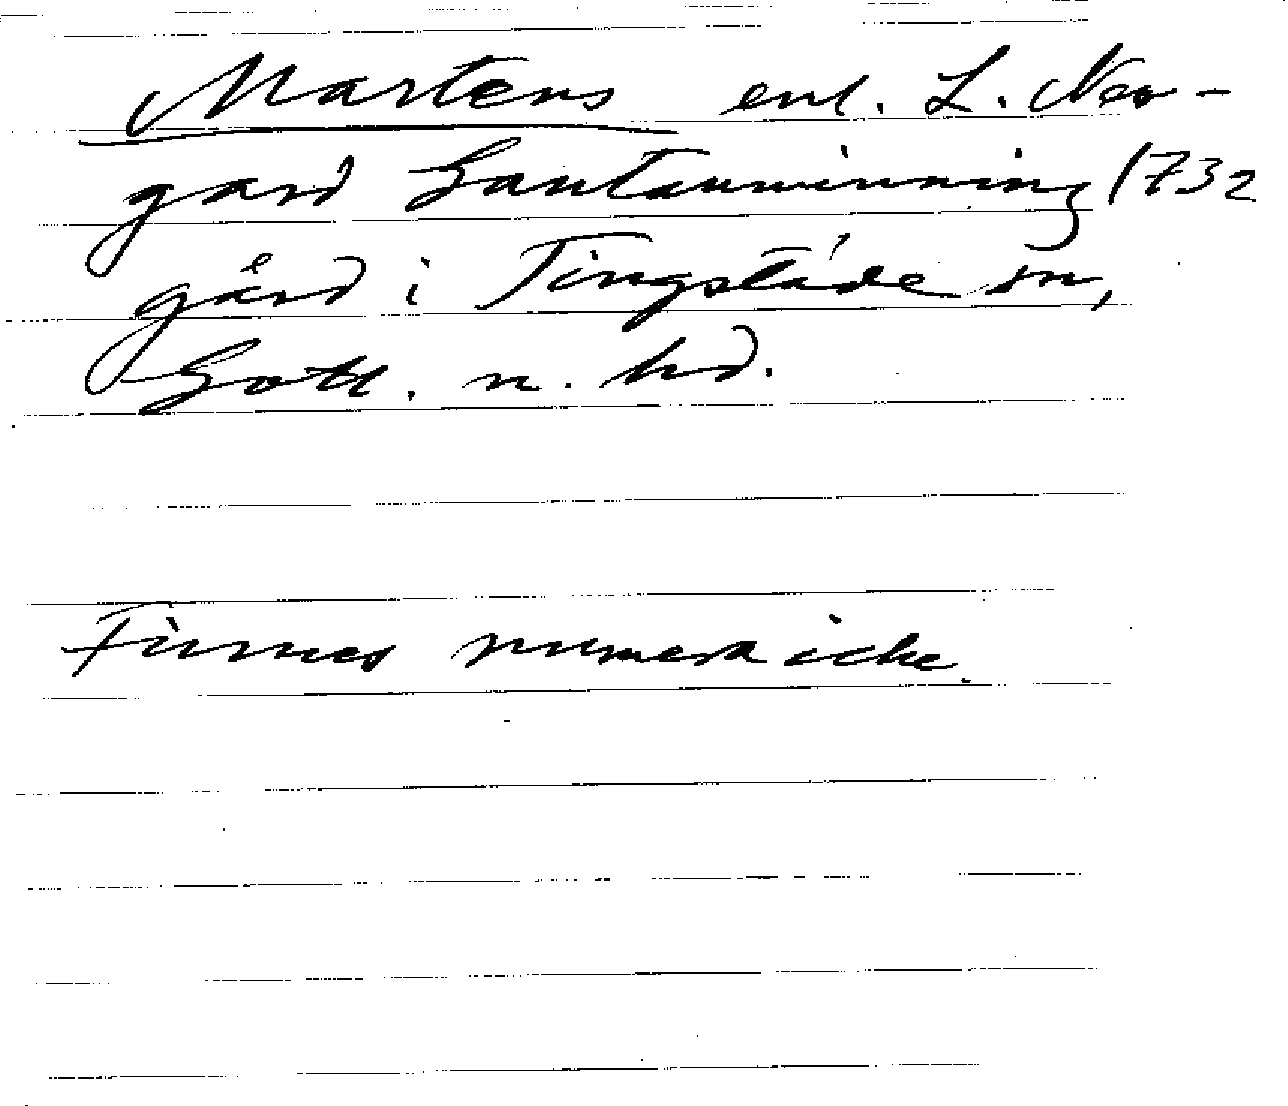 Martens enl. L. Neo-
gard Gautauminning 1732
gård i Tingstäde sn,
Gotl. n. hd.
Finnes numera icke.